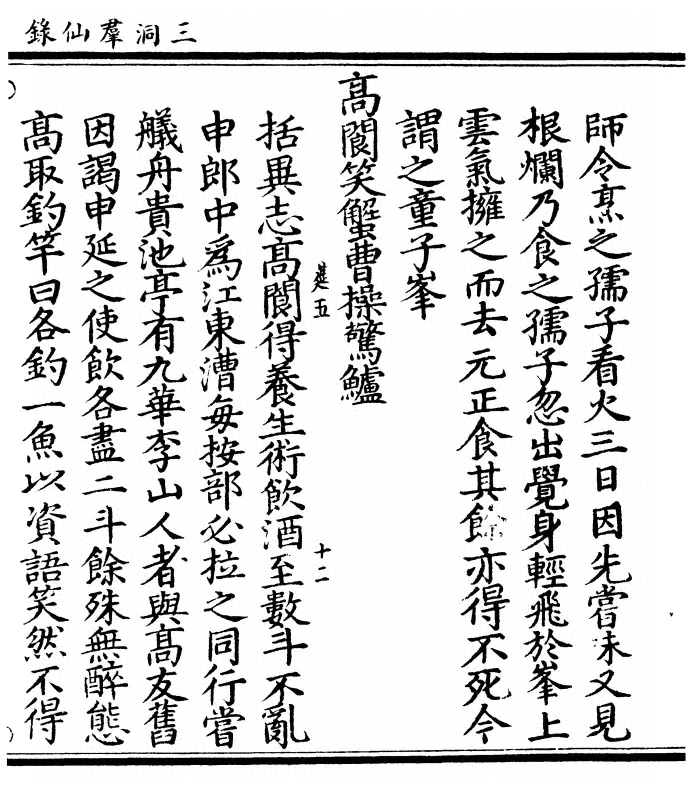 三洞羣仙錄
師令烹之孺子看火三日因先嘗味又見
根爛乃食之孺子忽出覺身輕飛於峯上
雲氣擁之而去元正食其餘亦得不死今
謂之童子峯
高閬笑蟹曹操驚鱸
五
十二
括異志高閬得養生術飲酒至數斗不亂
申郎中爲江東漕每按部必拉之同行嘗
艤舟貴池亭有九華李山人者與高友舊
因謁申延之使飲各盡二斗餘殊無醉態
高取釣竿曰各釣一魚以資語笑然不得